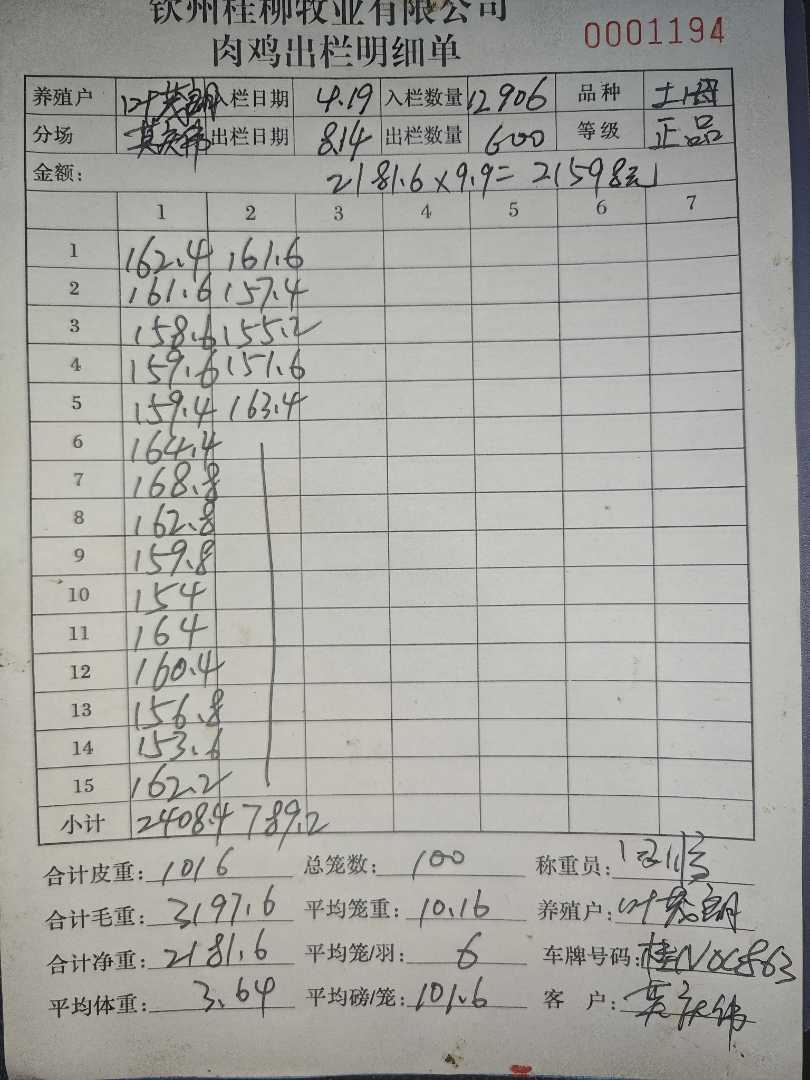 钦州桂柳牧业有限公司
肉鸡出栏明细单 0001194
养殖户 叶 朗 入栏日期 4.19 入栏数量 12906 品种 土
分场 莫庆伟 出栏日期 8.14 出栏数量 600 等级 正品
金额: 2181.6×9.9=21598元
1 2 3 4 5 6 7
1 162.4 161.6
2 161.6 157.4
3 158.6 155.2
4 159.6 151.6
5 159.4 163.4
6 164.4
7 168.8
8 162.8
9 159.8
10 154
11 164
12 160.4
13 156.8
14 153.6
15 162.2
小计 2408.4 789.2
合计皮重: 1016 总笼数: 100 称重员:
合计毛重: 3197.6 平均笼重: 10.16 养殖户: 叶 朗
合计净重: 2181.6 平均笼/羽: 6 车牌号码:
平均体重: 3.64 平均磅/笼: 101.6 客 户: 莫庆伟